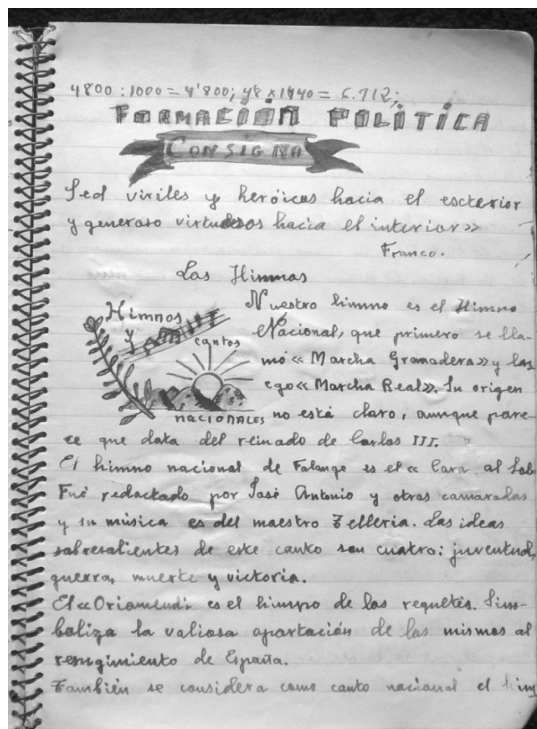 4800 : 1000 = 4'800; 4'8 x 1440 = 6.912;
FORMACIÓN POLÍTICA
CONSIGNA
Sed viriles y heróicos hacia el escterior
y generoso virtudesos hacia el interior»
Franco.
Los Himnos
Himnos
y
cantos
nacionales
Nuestro himno es el Himno
Nacional, que primero se lla-
mó «Marcha Granadera» y lu
ego «Marcha Real». Su origen
no está claro, aunque pare-
ce que data del reinado de Carlos III.
El himno nacional de Falange es el «Cara al Sol»
Fué redactado por José Antonio y otros camaradas
y su música es del maestro Telleria. Las ideas
sobresalientes de este canto son cuatro: juventud,
guerra, muerte y victoria.
El «Oriamendi» es el himno de los requetés. Sim-
boliza la valiosa aportación de los mismos al
resurgimiento de España.
También se considera como canto nacional el him